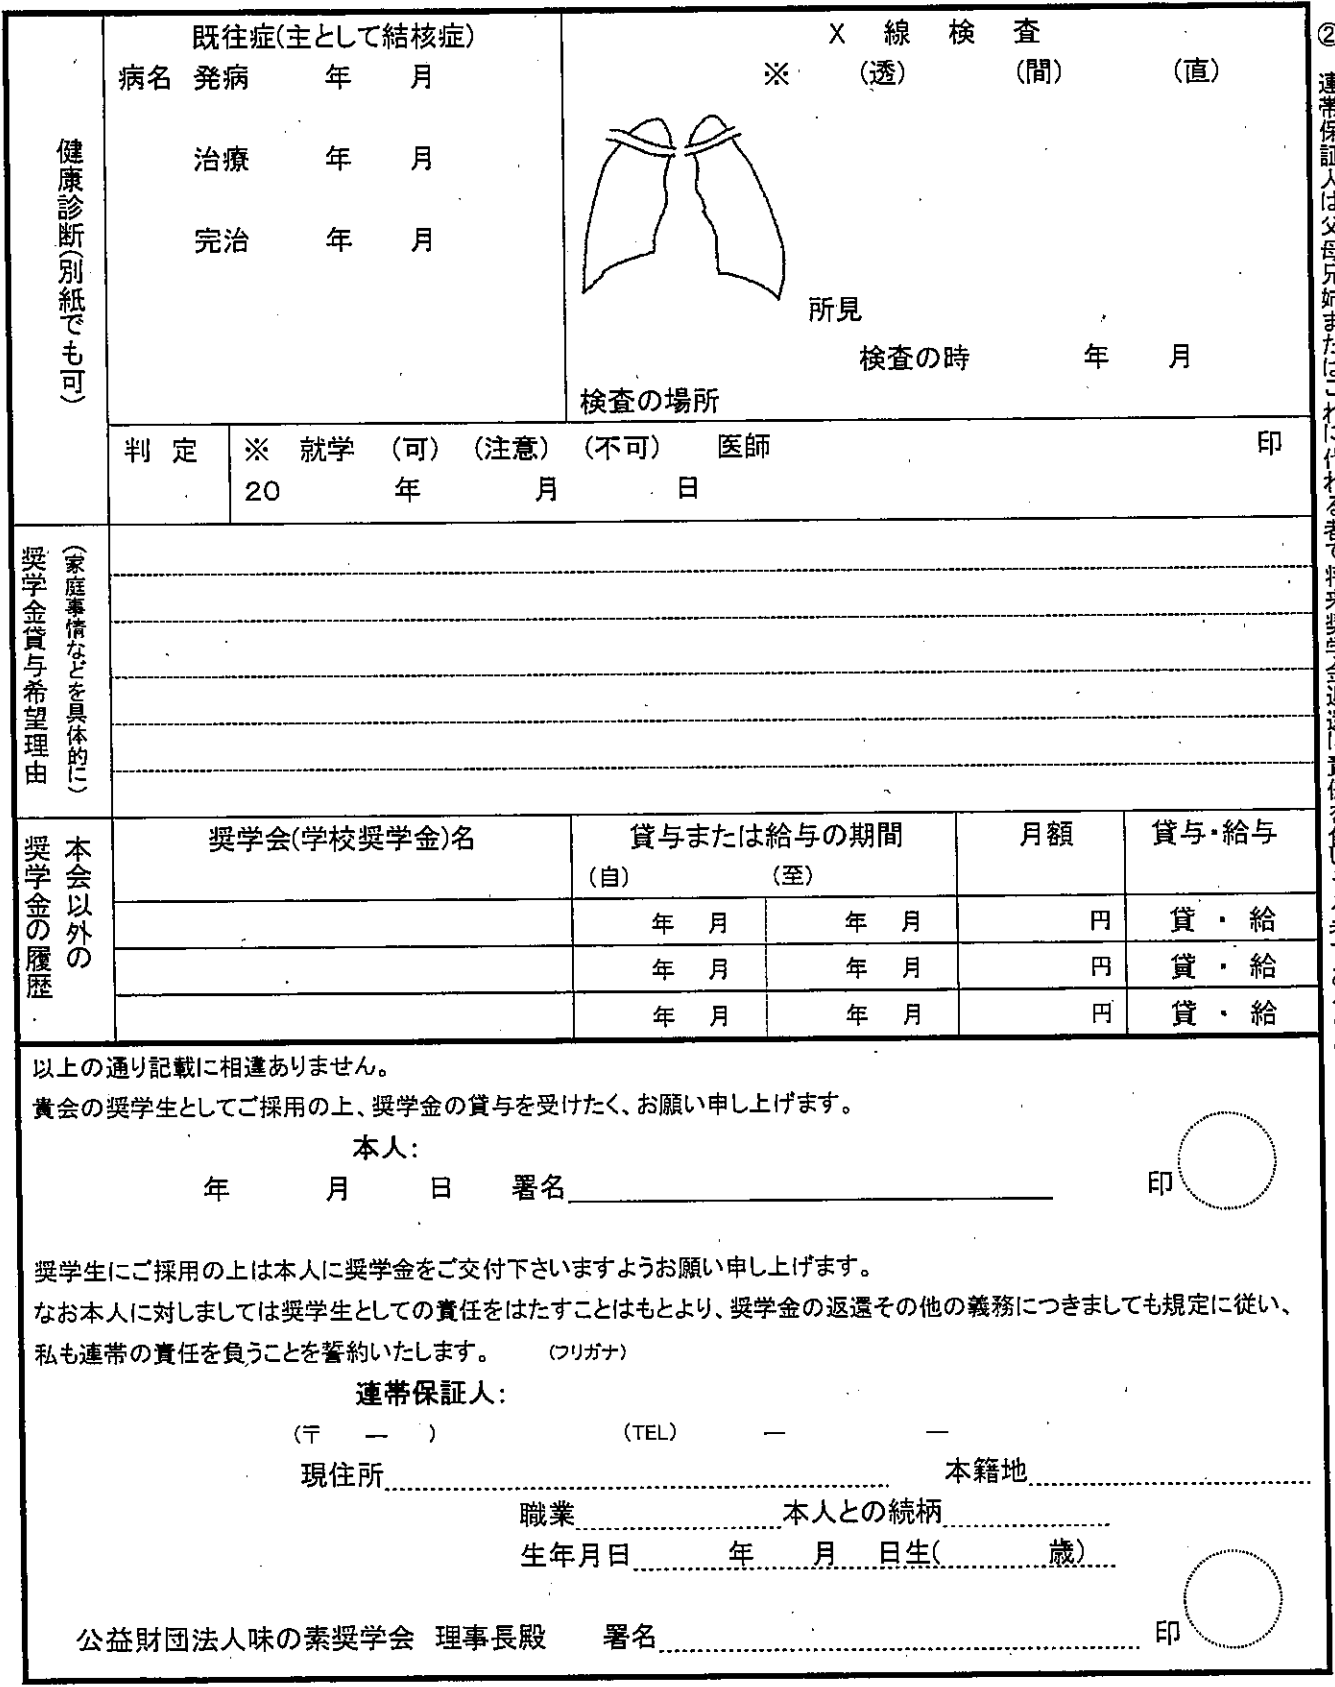 健康診断(別紙でも可)
既往症(主として結核症)
病名 発病 年 月
治療 年 月
完治 年 月
X 線 検 査
※ (透) (間) (直)
所見
検査の時 年 月
検査の場所
判 定
※ 就学 (可) (注意) (不可) 医師 印
20 年 月 日
奨学金貸与希望理由
(家庭事情などを具体的に)
本会以外の
奨学金の履歴
奨学会(学校奨学金)名 貸与または給与の期間 月額 貸与・給与
(自) (至)
年 月 年 月 円 貸 ・ 給
年 月 年 月 円 貸 ・ 給
年 月 年 月 円 貸 ・ 給
以上の通り記載に相違ありません。
貴会の奨学生としてご採用の上、奨学金の貸与を受けたく、お願い申し上げます。
本人:
年 月 日 署名 印
奨学生にご採用の上は本人に奨学金をご交付下さいますようお願い申し上げます。
なお本人に対しましては奨学生としての責任をはたすことはもとより、奨学金の返還その他の義務につきましても規定に従い、
私も連帯の責任を負うことを誓約いたします。 (フリガナ)
連帯保証人:
(〒 ― ) (TEL) ― ―
現住所 本籍地
職業 本人との続柄
生年月日 年 月 日生( 歳)
公益財団法人味の素奨学会 理事長殿 署名 印
② 連帯保証人は父母兄姉またはこれに代わる者で将来奨学金返還に責任を負い